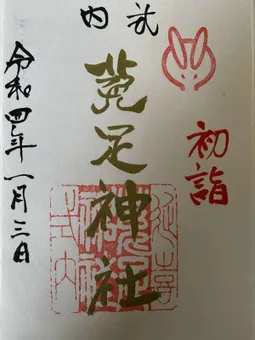 初詣
式内
菟足神社
令和四年一月三日